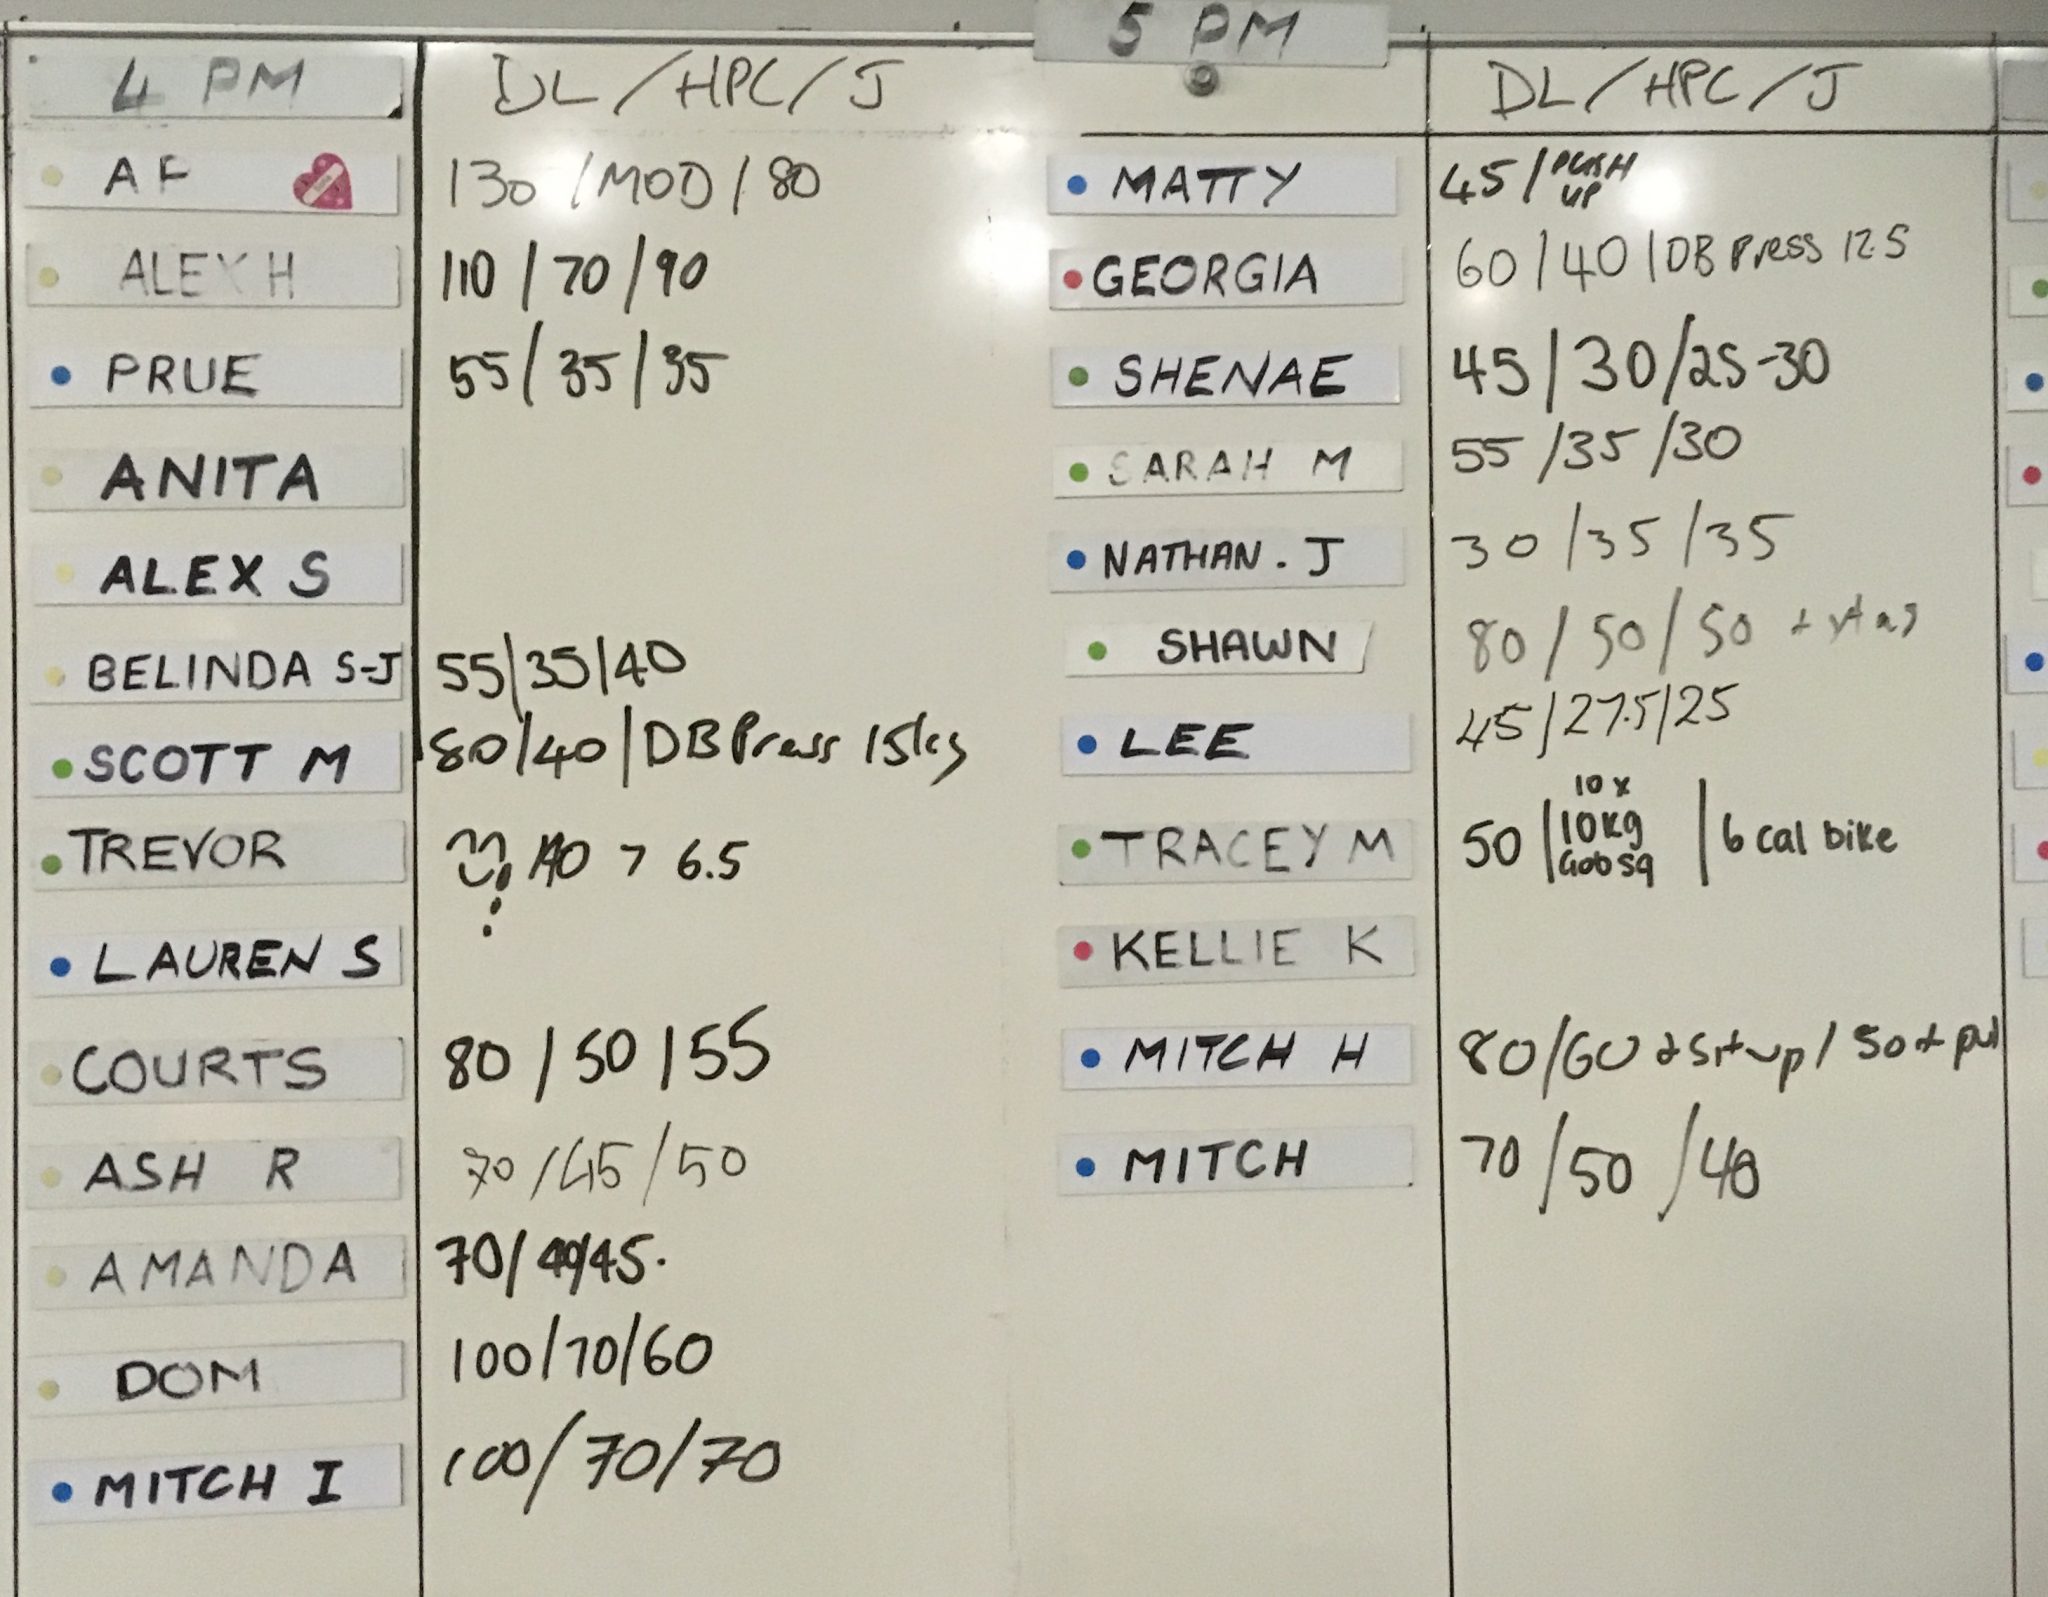 4 PM DL / HPC / J
AF 130 / MOD / 80
ALEX H 110 / 70 / 90
PRUE 55 / 35 / 35
ANITA
ALEX S
BELINDA S-J 55/35/40
SCOTT M 80/40/DB Press 15kg
TREVOR > 6.5
LAUREN S
COURTS 80 / 50 / 55
ASH R 70 / 45 / 50
AMANDA 70/40/45.
DOM 100/70/60
MITCH I 100/70/70
5 PM DL / HPC / J
MATTY 45 / PUSH
UP
GEORGIA 60 / 40 / DB Press 12.5
SHENAE 45 / 30 / 25-30
SARAH M 55 / 35 / 30
NATHAN. J 30 / 35 / 35
SHAWN 80 / 50 / 50 +
LEE 45 / 27.5 / 25
10 x
TRACEY M 50 | 10kg | 6 cal bike
Gob sq
KELLIE K
MITCH H 80/60 + Sit up / 50 +
MITCH 70 / 50 / 40